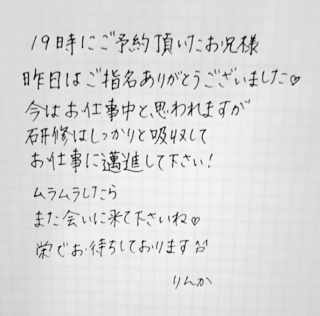 19時にご予約頂いたお兄様
昨日はご指名ありがとうございました♡
今はお仕事中と、思われますが
研修はしっかりと吸収して
お仕事に邁進して下さい!
ムラムラしたら
また会いに来て下さいね♡
栄でお待ちしております
りんか